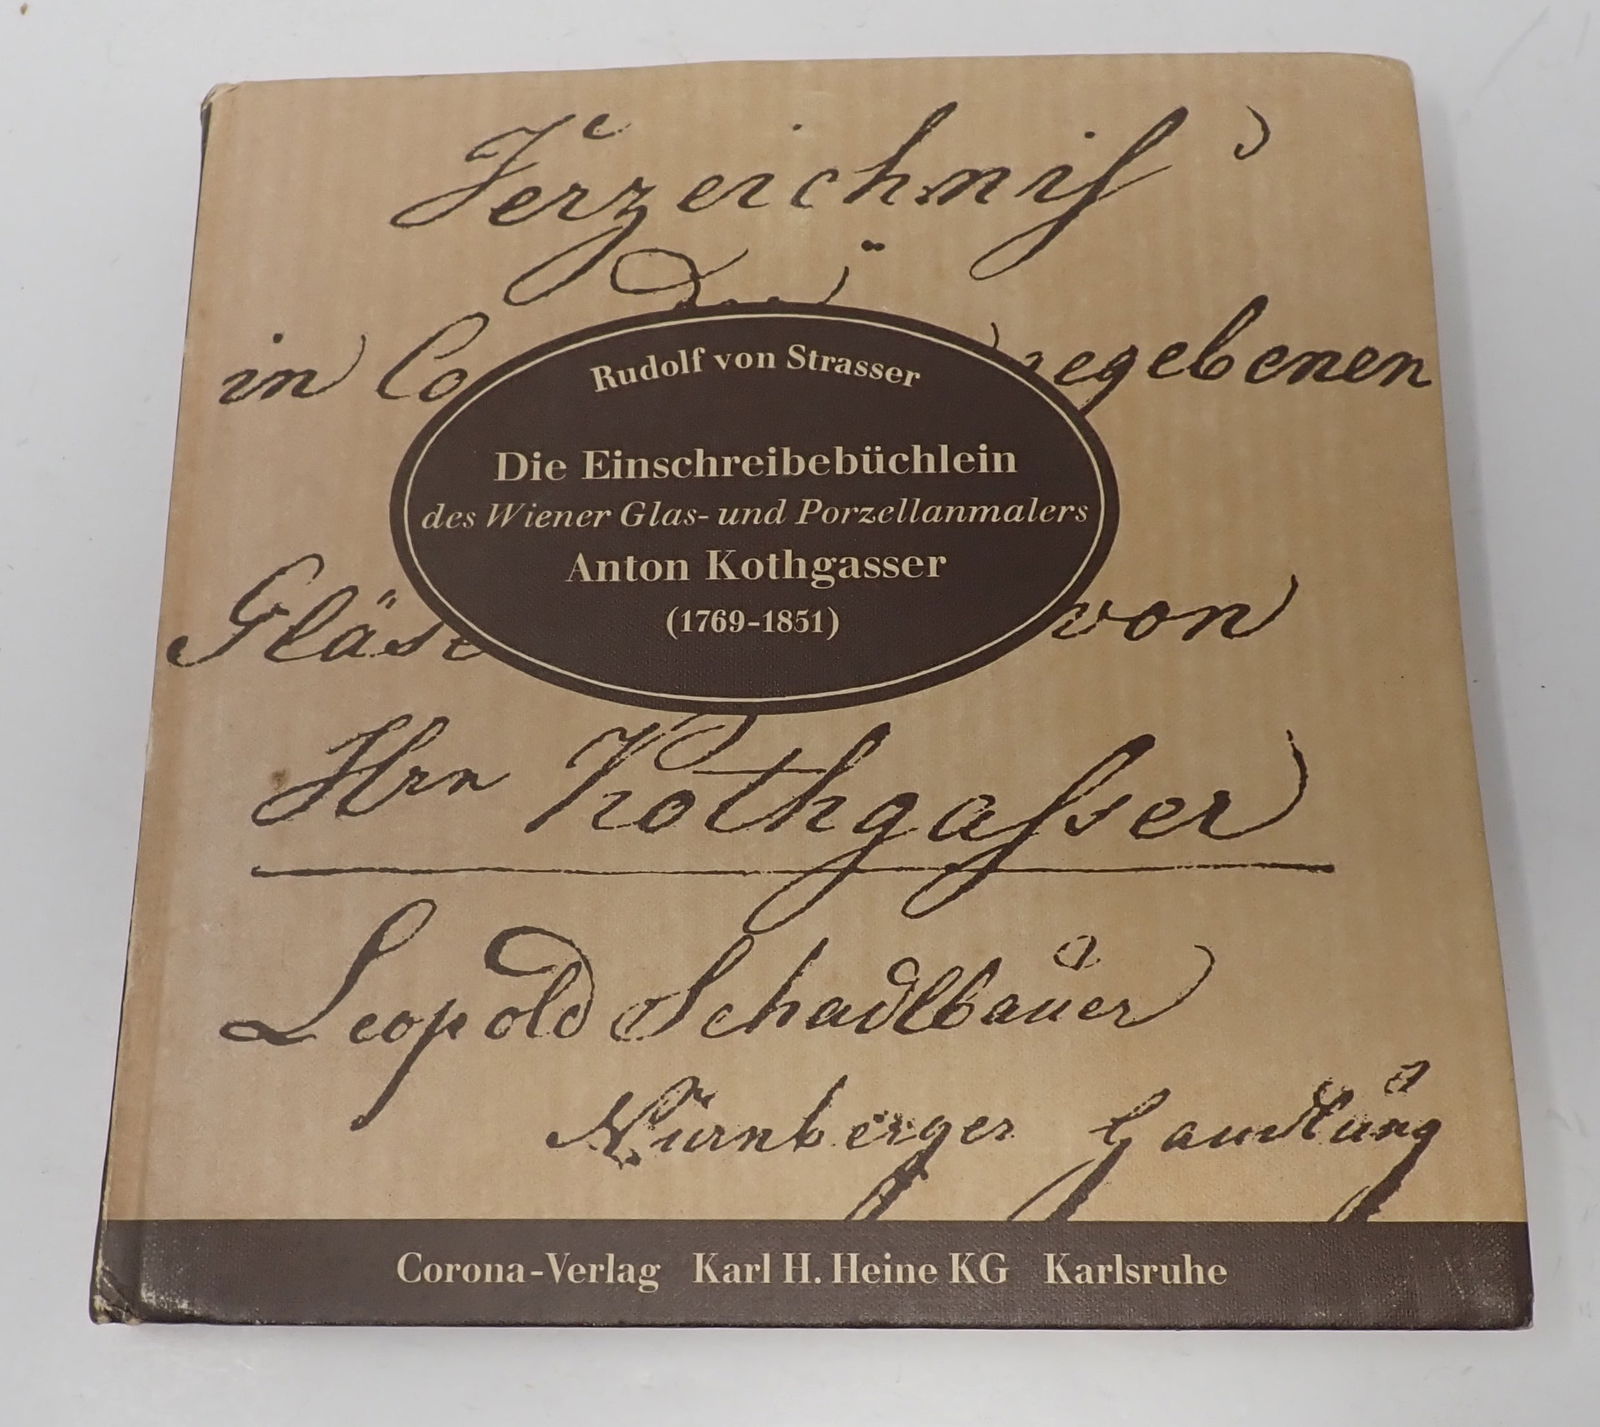 Verzeichniß
in Co gegebenen
Rudolf von Strasser
Die Einschreibebüchlein
des Wiener Glas- und Porzellanmalers
Anton Kothgasser
(1769-1851)
Gläse von
Hrn Kothgasser
Leopold Schadlbauer
Nürnberger Handlung
Corona-Verlag Karl H. Heine KG Karlsruhe